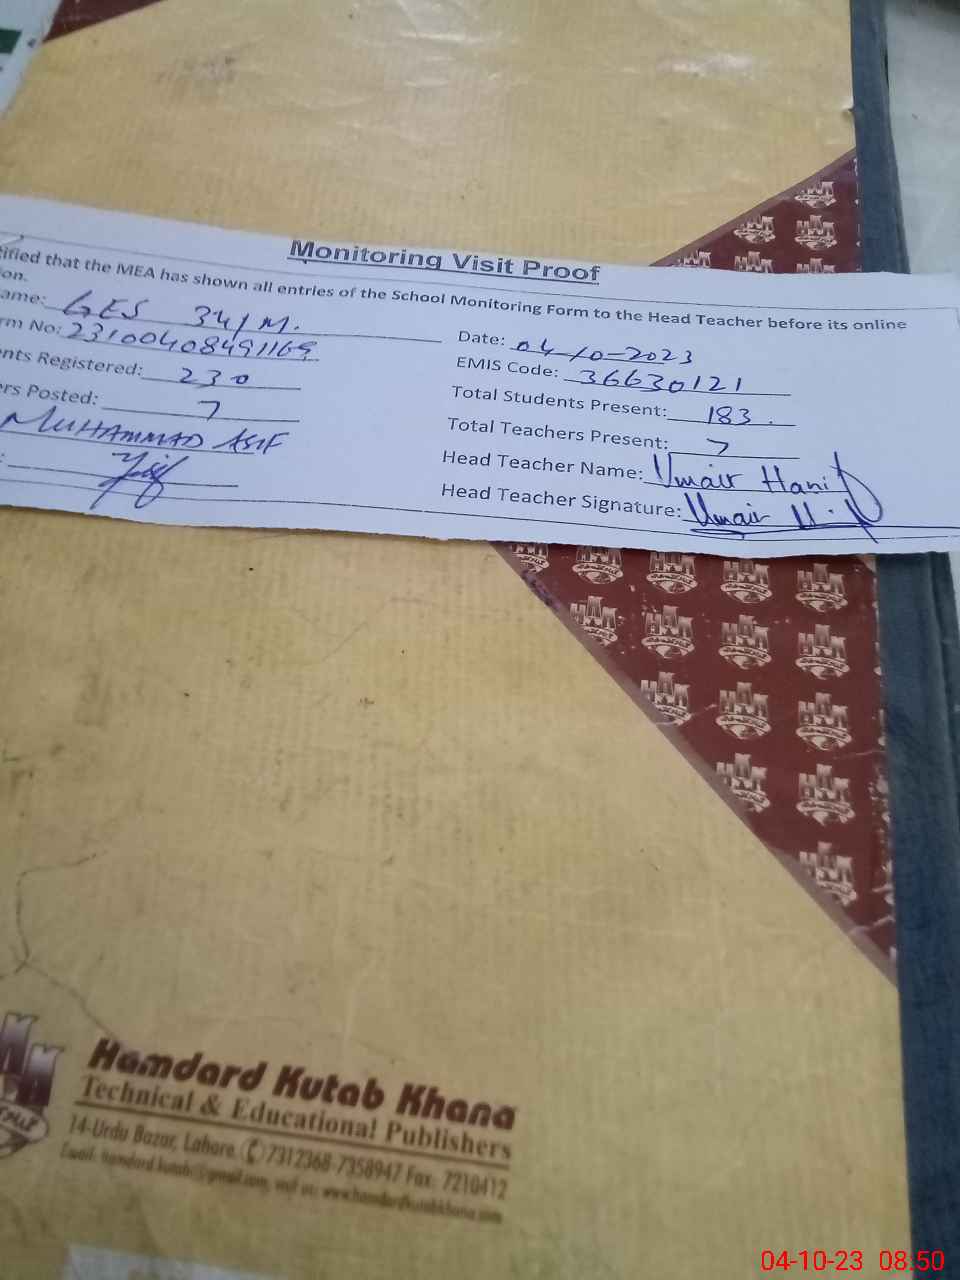 Monitoring Visit Proof
tified that the MEA has shown all entries of the School Monitoring Form to the Head Teacher before its online
on.
ame: GES 34/M.
rm No: 23100408491169
Date: 04-10-2023
EMIS Code: 36630121
nts Registered: 230
Total Students Present: 183.
ers Posted: 7
Total Teachers Present: 7
MUHAMMAD ASIF
Head Teacher Name: Umair Hanif
Head Teacher Signature: Umair
Hamdard Kutab Khana
Technical & Educational Publishers
14-Urdu Bazar, Lahore. 7312368-7358947 Fax: 7210412
Email: hamdard.kutab@gmail.com, visit us: www.hamdardkutabkhana.com
04-10-23 08.50